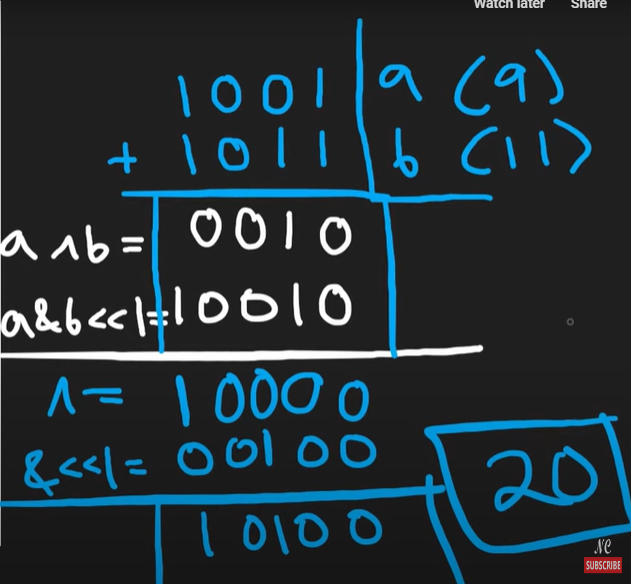 Watch later Share
1001 a (9)
+ 1011 b (11)
a ^ b = 0010
a&b<<1= 10010
^ = 10000
&<<1= 00100
20
10100
NC
SUBSCRIBE